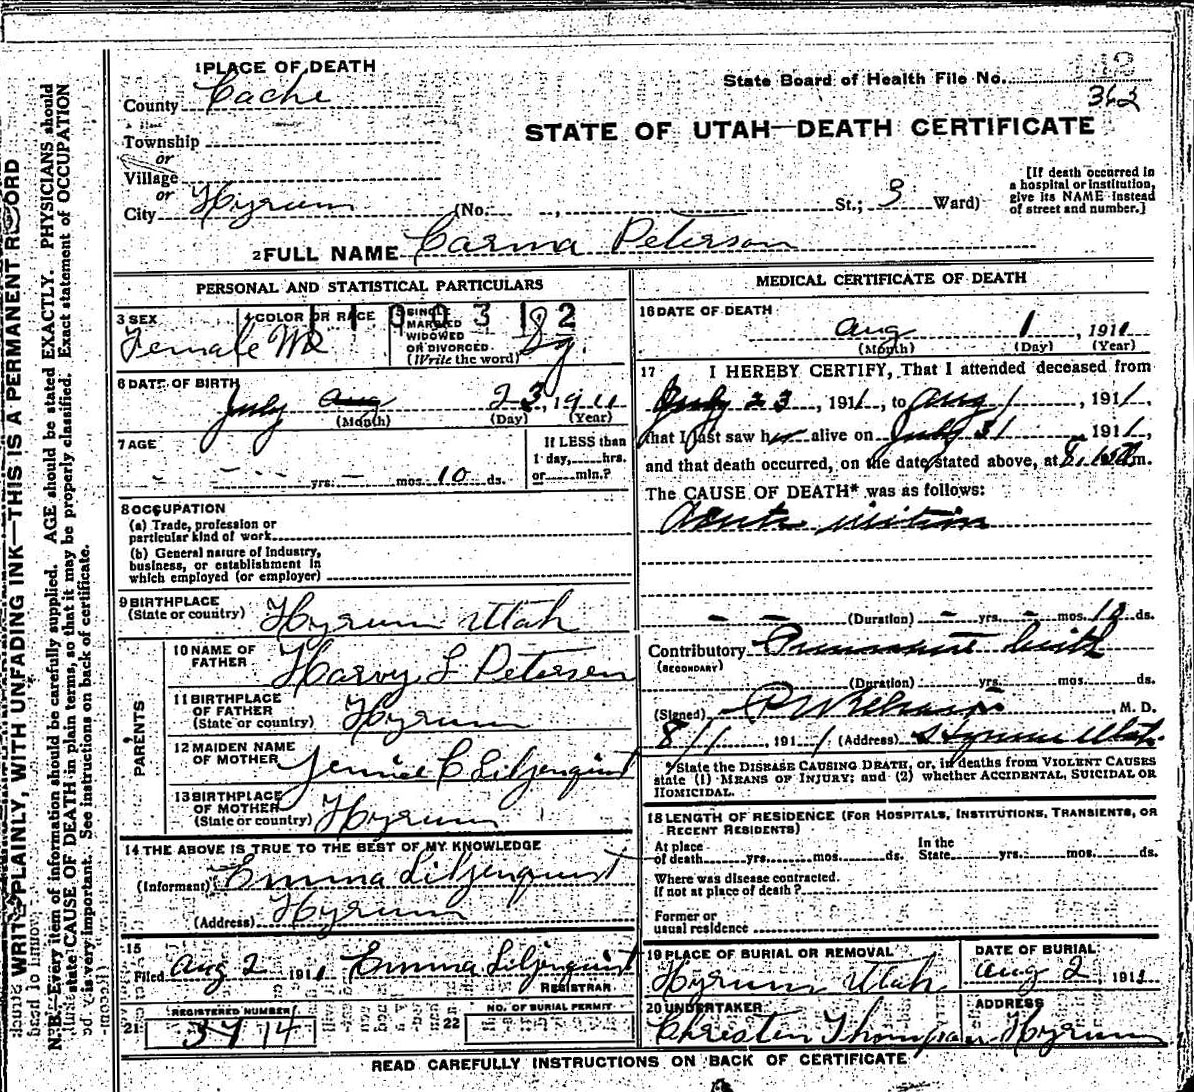 1 PLACE OF DEATH
State Board of Health File No.
County Cache
362
Township
STATE OF UTAH—DEATH CERTIFICATE
or
Village
or
City Hyrum (No. , St.; 3 Ward)
[If death occurred in
a hospital or institution,
give its NAME instead
of street and number.]
2 FULL NAME Carma Peterson
PERSONAL AND STATISTICAL PARTICULARS
3 SEX
Female
4 COLOR OR RACE
5 SINGLE
MARRIED
WIDOWED
OR DIVORCED.
(Write the word)
6 DATE OF BIRTH
July Aug 23, 1911
(Month) (Day) (Year)
7 AGE
yrs. mos. 10 ds.
If LESS than
1 day, hrs.
or min.?
8 OCCUPATION
(a) Trade, profession or
particular kind of work
(b) General nature of Industry,
business, or establishment in
which employed (or employer)
9 BIRTHPLACE
(State or country) Hyrum Utah
PARENTS
10 NAME OF
FATHER Harvy L Petersen
11 BIRTHPLACE
OF FATHER
(State or country) Hyrum
12 MAIDEN NAME
OF MOTHER Jennie C Liljenquist
13 BIRTHPLACE
OF MOTHER
(State or country) Hyrum
14 THE ABOVE IS TRUE TO THE BEST OF MY KNOWLEDGE
(Informant) Emma Liljenquist
(Address) Hyrum
15
Filed Aug 2 1911 Emma Liljenquist
REGISTRAR
REGISTERED NUMBER
21
NO. OF BURIAL PERMIT
22
MEDICAL CERTIFICATE OF DEATH
16 DATE OF DEATH
Aug 1, 1911
(Month) (Day) (Year)
17 I HEREBY CERTIFY, That I attended deceased from
July 23, 1911, to Aug 1, 1911,
that I last saw her alive on July 31 1911,
and that death occurred, on the date stated above, at m.
The CAUSE OF DEATH* was as follows:
(Duration) yrs. mos. 10 ds.
Contributory
(SECONDARY)
(Duration) yrs. mos. ds.
(Signed) M. D.
8/1, 1911 (Address) Hyrum Utah
*State the DISEASE CAUSING DEATH, or, in deaths from VIOLENT CAUSES
state (1) MEANS OF INJURY; and (2) whether ACCIDENTAL, SUICIDAL OR
HOMICIDAL.
18 LENGTH OF RESIDENCE (FOR HOSPITALS, INSTITUTIONS, TRANSIENTS, OR
RECENT RESIDENTS)
At place
of death yrs. mos. ds.
In the
State yrs. mos. ds.
Where was disease contracted.
if not at place of death?
Former or
usual residence
19 PLACE OF BURIAL OR REMOVAL
Hyrum Utah
DATE OF BURIAL
Aug 2, 1911
20 UNDERTAKER
Christen Thompson
ADDRESS
Hyrum
READ CAREFULLY INSTRUCTIONS ON BACK OF CERTIFICATE
WRITE PLAINLY, WITH UNFADING INK—THIS IS A PERMANENT RECORD
N. B.—Every item of information should be carefully supplied. AGE should be stated EXACTLY. PHYSICIANS should
state CAUSE OF DEATH in plain terms, so that it may be properly classified. Exact statement of OCCUPATION
is very important. See instructions on back of certificate.